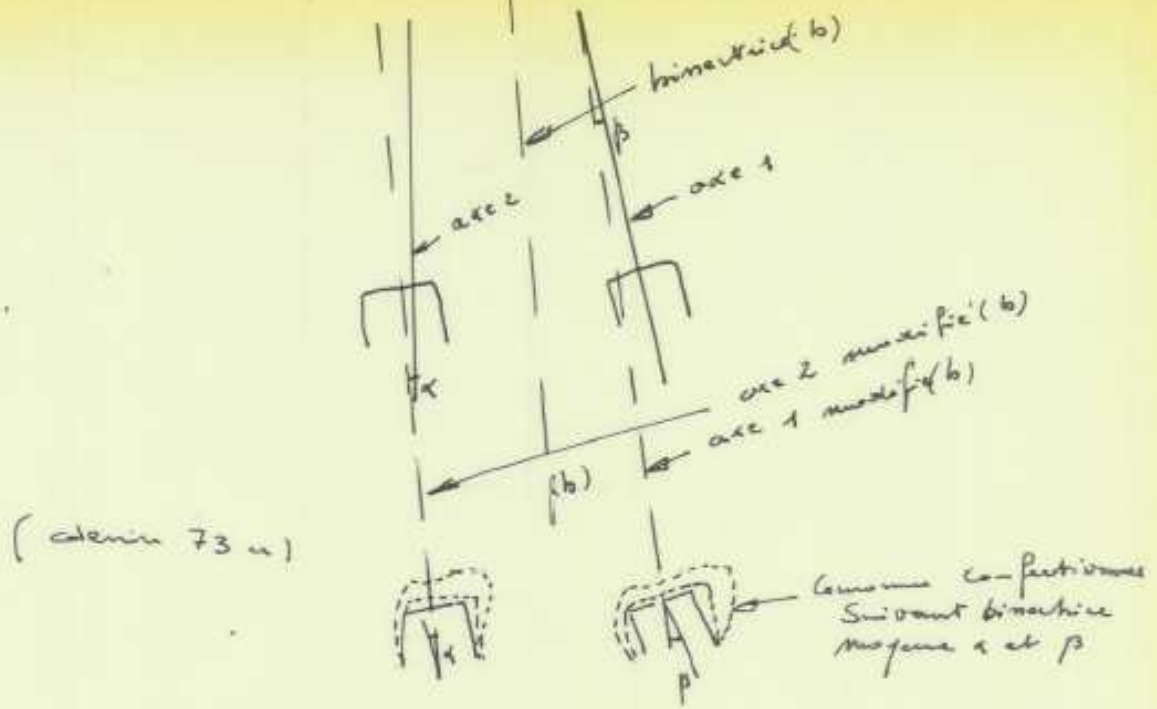 bissectrice (b)
β
axe 1
axe 2
α
axe 2 modifié (b)
axe 1 modifié (b)
(b)
73
α
β
Couronne
Suivant bissectrice
moyenne α et β